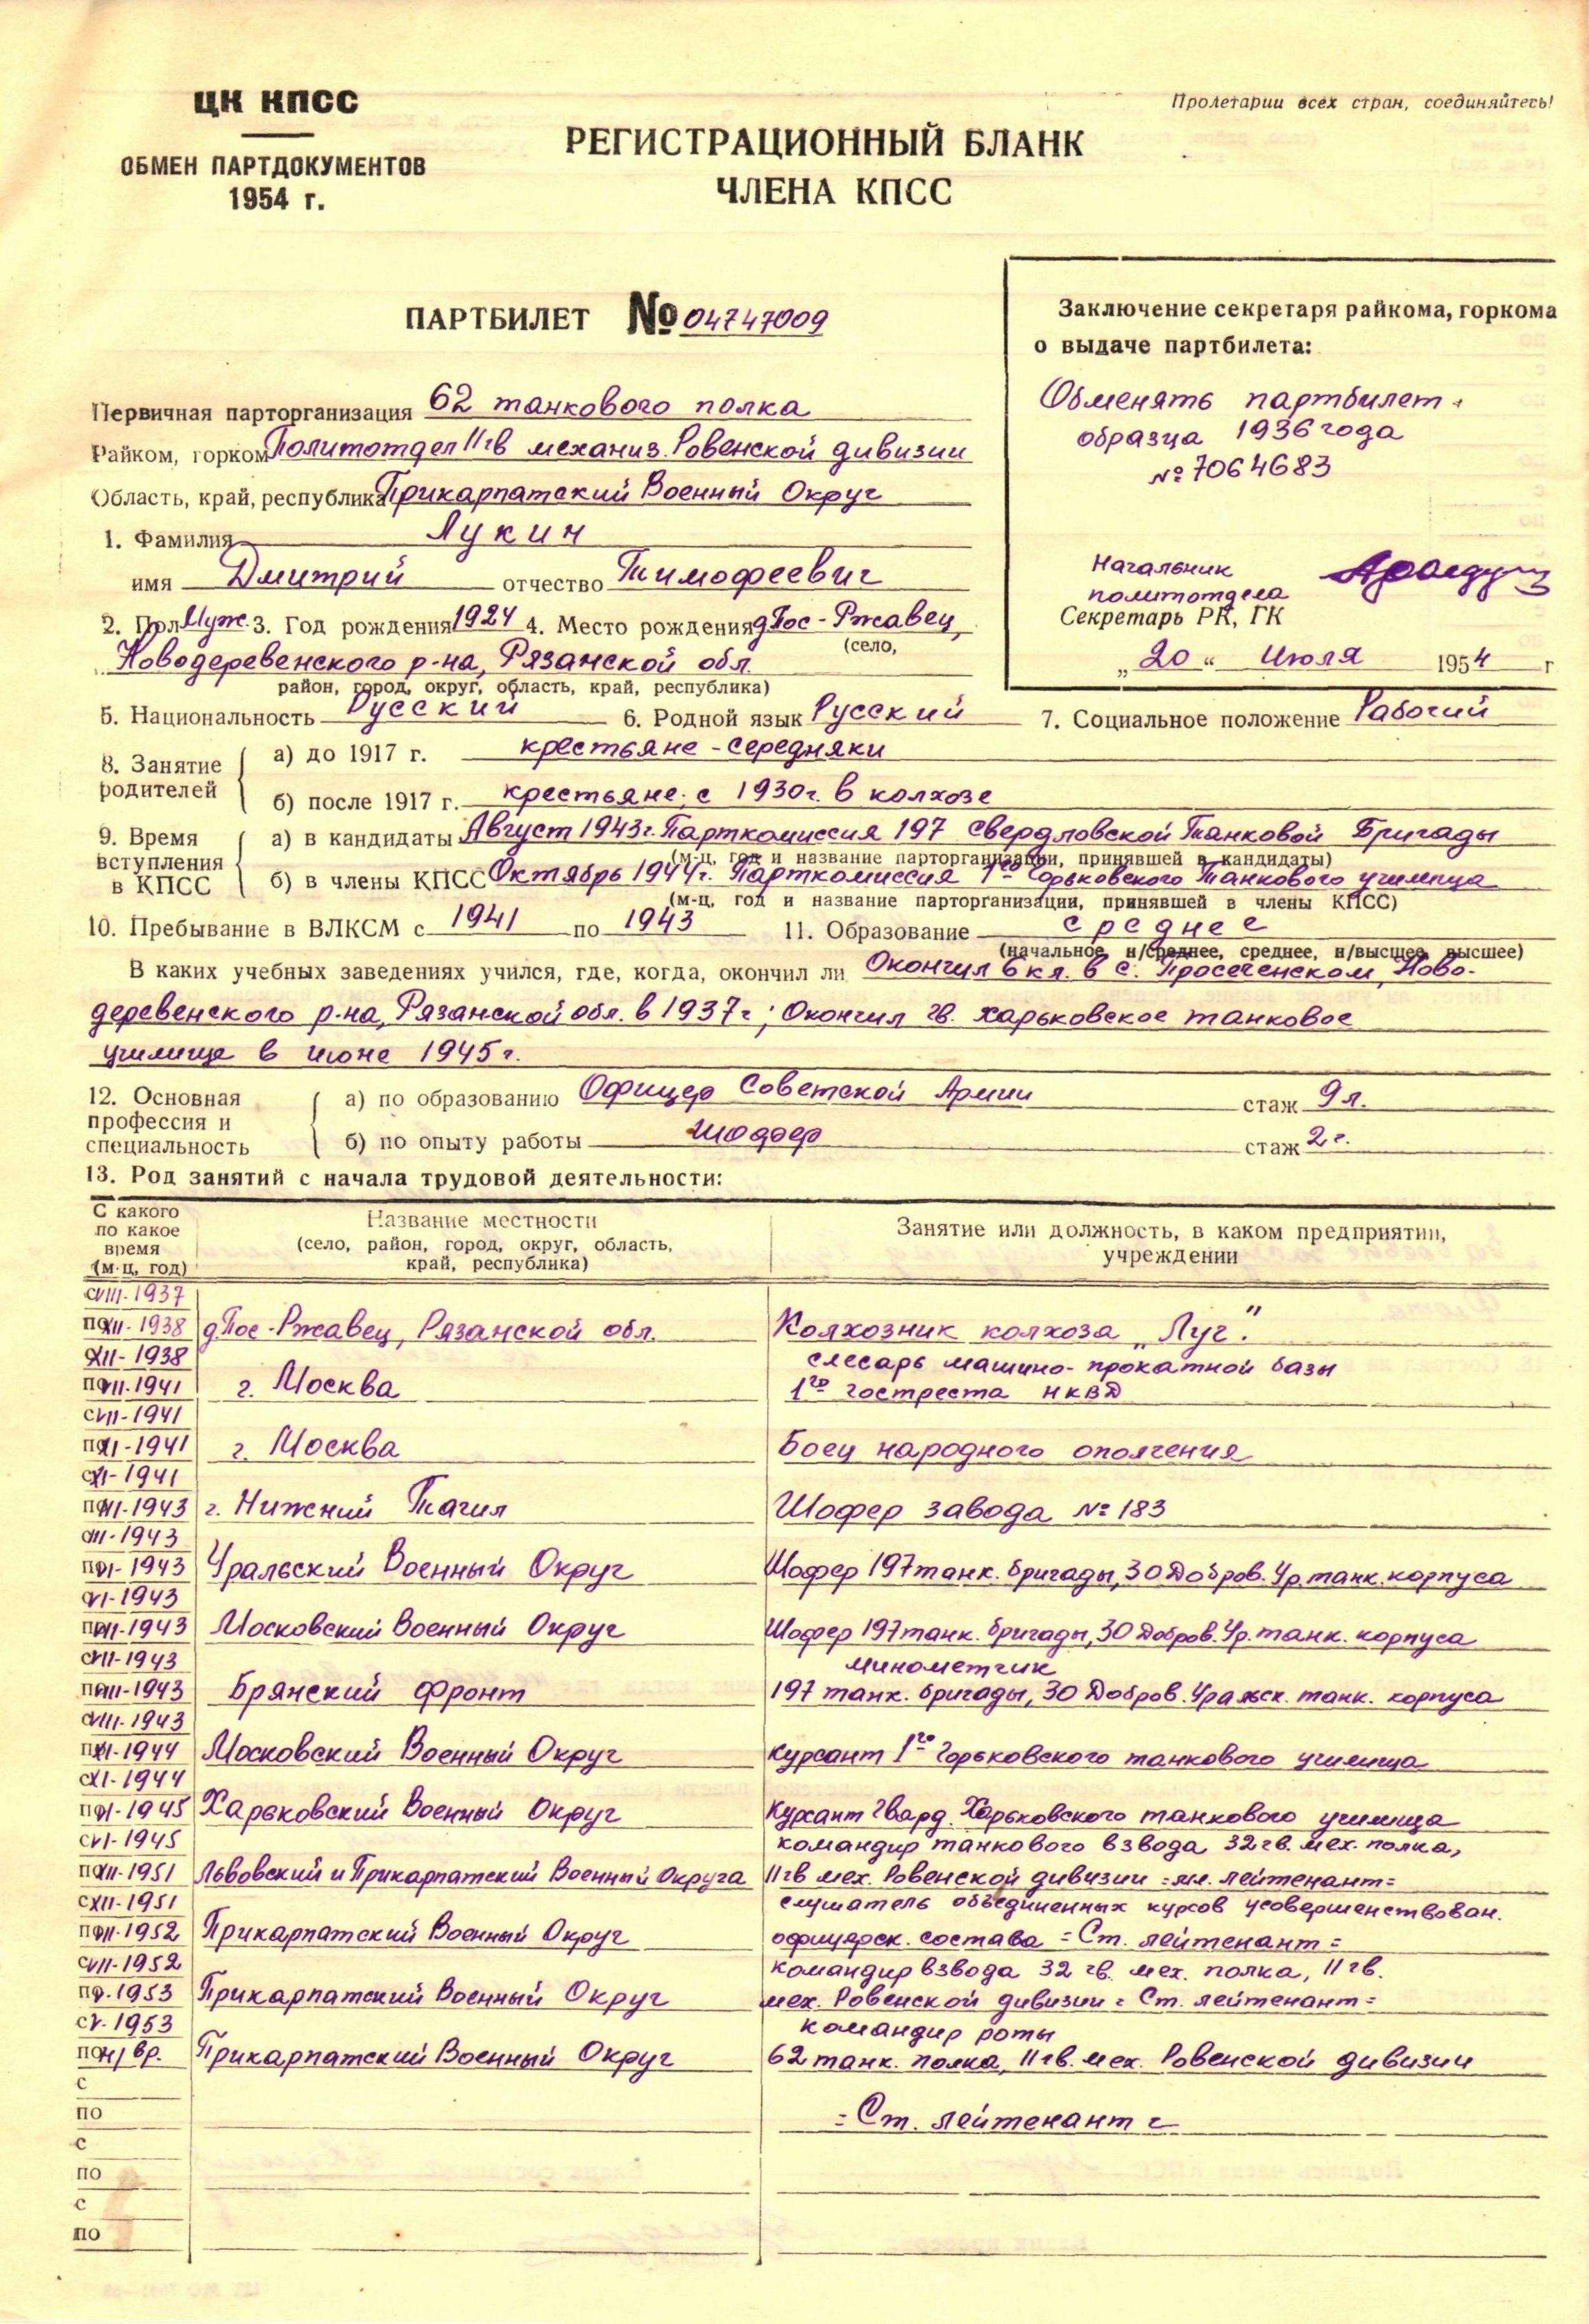 ЦК КПСС
ОБМЕН ПАРТДОКУМЕНТОВ
1954 г.
Пролетарии всех стран, соединяйтесь!
РЕГИСТРАЦИОННЫЙ БЛАНК
ЧЛЕНА КПСС
ПАРТБИЛЕТ № 04747009
Заключение секретаря райкома, горкома
о выдаче партбилета:
Обменять партбилет
образца 1936 года
№ 7064683
Начальник
политотдела
Секретарь РК, ГК
„20“ Июля 1954 г
Первичная парторганизация 62 танкового полка
Райком, горком Политотдел 11 гв механиз. Ровенской дивизии
Область, край, республика Прикарпатский Военный Округ
1. Фамилия Лукин
имя Дмитрий отчество Тимофеевич
2. Пол Муж. 3. Год рождения 1924 4. Место рождения д Пос-Ржавец,
(село,
Новодеревенского р-на, Рязанской обл.
район, город, округ, область, край, республика)
5. Национальность Русский 6. Родной язык Русский 7. Социальное положение Рабочий
8. Занятие родителей а) до 1917 г. крестьяне - середняки
б) после 1917 г. крестьяне; с 1930г. в колхозе
9. Время вступления в КПСС а) в кандидаты Август 1943г. Парткомиссия 197 Свердловской Танковой Бригады
(м-ц, год и название парторганизации, принявшей в кандидаты)
б) в члены КПСС Октябрь 1944г. Парткомиссия 1го Горьковского Танкового училища
(м-ц, год и название парторганизации, принявшей в члены КПСС)
10. Пребывание в ВЛКСМ с 1941 по 1943 11. Образование среднее
(начальное, н/среднее, среднее, н/высшее, высшее)
В каких учебных заведениях учился, где, когда, окончил ли Окончил 6 кл. в с. Просеченском, Ново-
деревенского р-на, Рязанской обл. в 1937 г; Окончил гв. харьковское танковое
училище в июне 1945 г.
12. Основная профессия и специальность а) по образованию Офицер Советской Армии стаж 9 л.
б) по опыту работы шофер стаж 2 г.
13. Род занятий с начала трудовой деятельности:
С какого по какое время (м-ц, год) Название местности (село, район, город, округ, область, край, республика) Занятие или должность, в каком предприятии, учреждении
с VIII-1937
по XII-1938 д. Пос-Ржавец, Рязанской обл. Колхозник колхоза „Луч“.
с XII-1938 слесарь машино-прокатной базы
по VII.1941 г. Москва 1го гостреста НКВД
с VII-1941
по XI-1941 г. Москва Боец народного ополчения
с XI-1941
по III-1943 г. Нижний Тагил Шофер завода № 183
с III-1943
по VI-1943 Уральский Военный Округ Шофер 197 танк. бригады, 30 Добров. Ур. танк. корпуса
с VI-1943
по VII-1943 Московский Военный Округ Шофер 197 танк. бригады, 30 Добров. Ур. танк. корпуса
с VII-1943 минометчик
по VIII-1943 Брянский фронт 197 танк. бригады, 30 Добров. Уральск. танк. корпуса
с VIII-1943
по XI-1944 Московский Военный Округ Курсант 1го Горьковского танкового училища
с XI-1944
по VI-1945 Харьковский Военный Округ Курсант Гвард. Харьковского танкового училища
с VI-1945 командир танкового взвода 32 гв. мех. полка,
по XII-1951 Львовский и Прикарпатский Военный Округа 11 гв мех. Ровенской дивизии =мл. лейтенант=
с XII-1951 слушатель объединенных курсов усовершенствован.
по VII-1952 Прикарпатский Военный Округ офицерск. состава = Ст. лейтенант =
с VII-1952 командир взвода 32 гв. мех. полка, 11 гв.
по V.1953 Прикарпатский Военный Округ мех. Ровенской дивизии = Ст. лейтенант =
с V-1953 командир роты
по н/вр. Прикарпатский Военный Округ 62 танк. полка, 11 гв. мех. Ровенской дивизии
с
по = Ст. лейтенант =
с
по
с
по